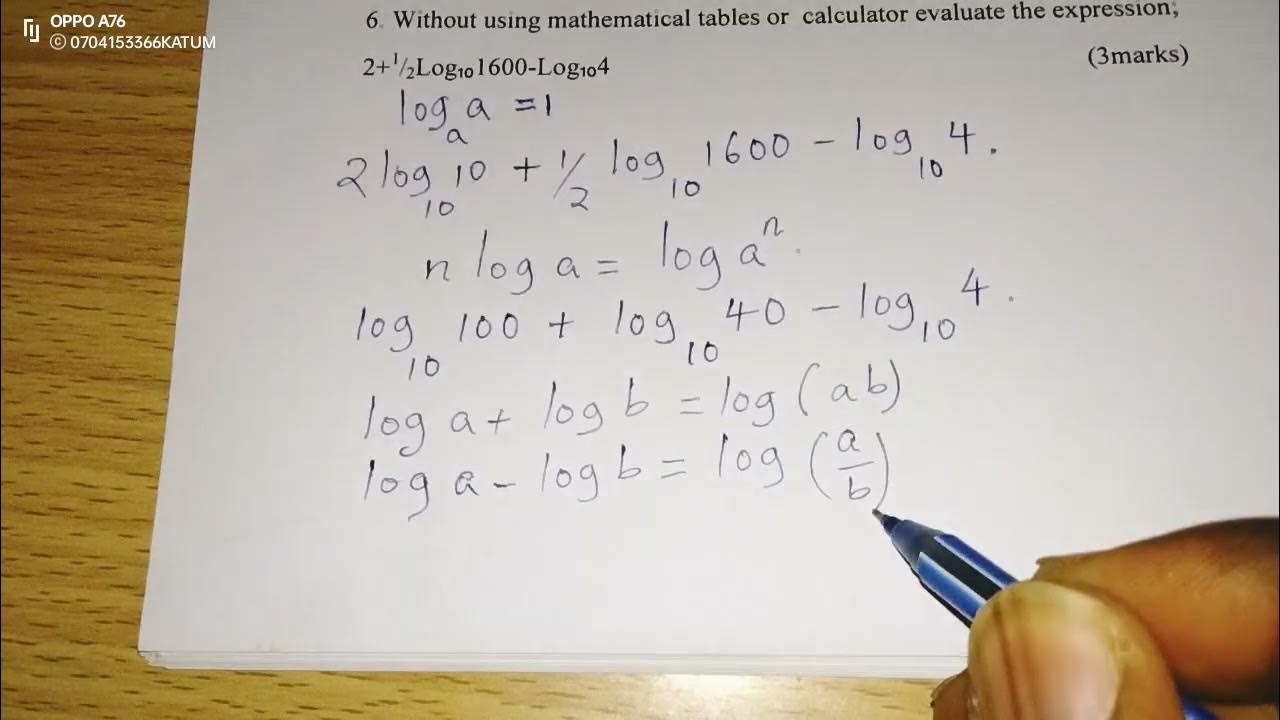 OPPO A76
© 0704153366KATUM
6. Without using mathematical tables or calculator evaluate the expression;
2+¹/₂Log₁₀1600-Log₁₀4 (3marks)
logₐ a = 1
2 log₁₀ 10 + 1/2 log₁₀ 1600 - log₁₀ 4.
n log a = log aⁿ.
log₁₀ 100 + log₁₀ 40 - log₁₀ 4.
log a + log b = log (ab)
log a - log b = log (a/b)